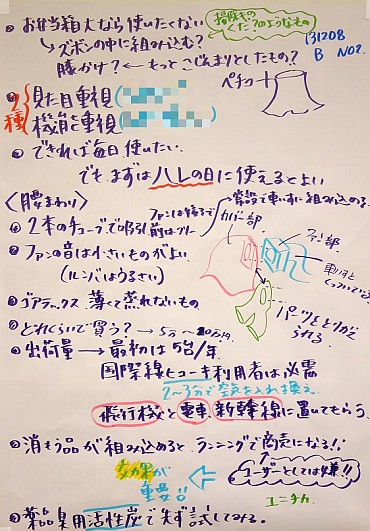 お弁当箱大なら使いたくない
掃除きのくだ?のようなもの
131208
B NO2.
ズボンの中に組み込む?
膝かけ?←もっとこじんまりとしたもの?
ペチコート
2種
見た目重視
機能重視
できれば毎日使いたい。
でもまずはハレの日に使えるとよい
〈腰まわり〉
常設で車いすに組み込める。
2本のチューブで吸引
ファンは後ろで
前はフリー
カバー部
ファン部
ファンの音は小さいものがよい
(ルンバはうるさい)
車いすと
くっついている
ゴアテックス 薄くて蒸れないもの
パーツをとりかえ
られる
どれくらいで買う?→5万〜20万円
出荷量→最初は5台/年
国際線ヒコーキ利用者は必需
2〜3分で空気を入れ換え
飛行機と電車、新幹線に置いてもらう
消もう品が組み込めるとランニングで商売になる!!
ユーザーとしては嫌!!
効果が
重要!!
ユニチカ
薬品臭用活性炭で先ず試してみる。